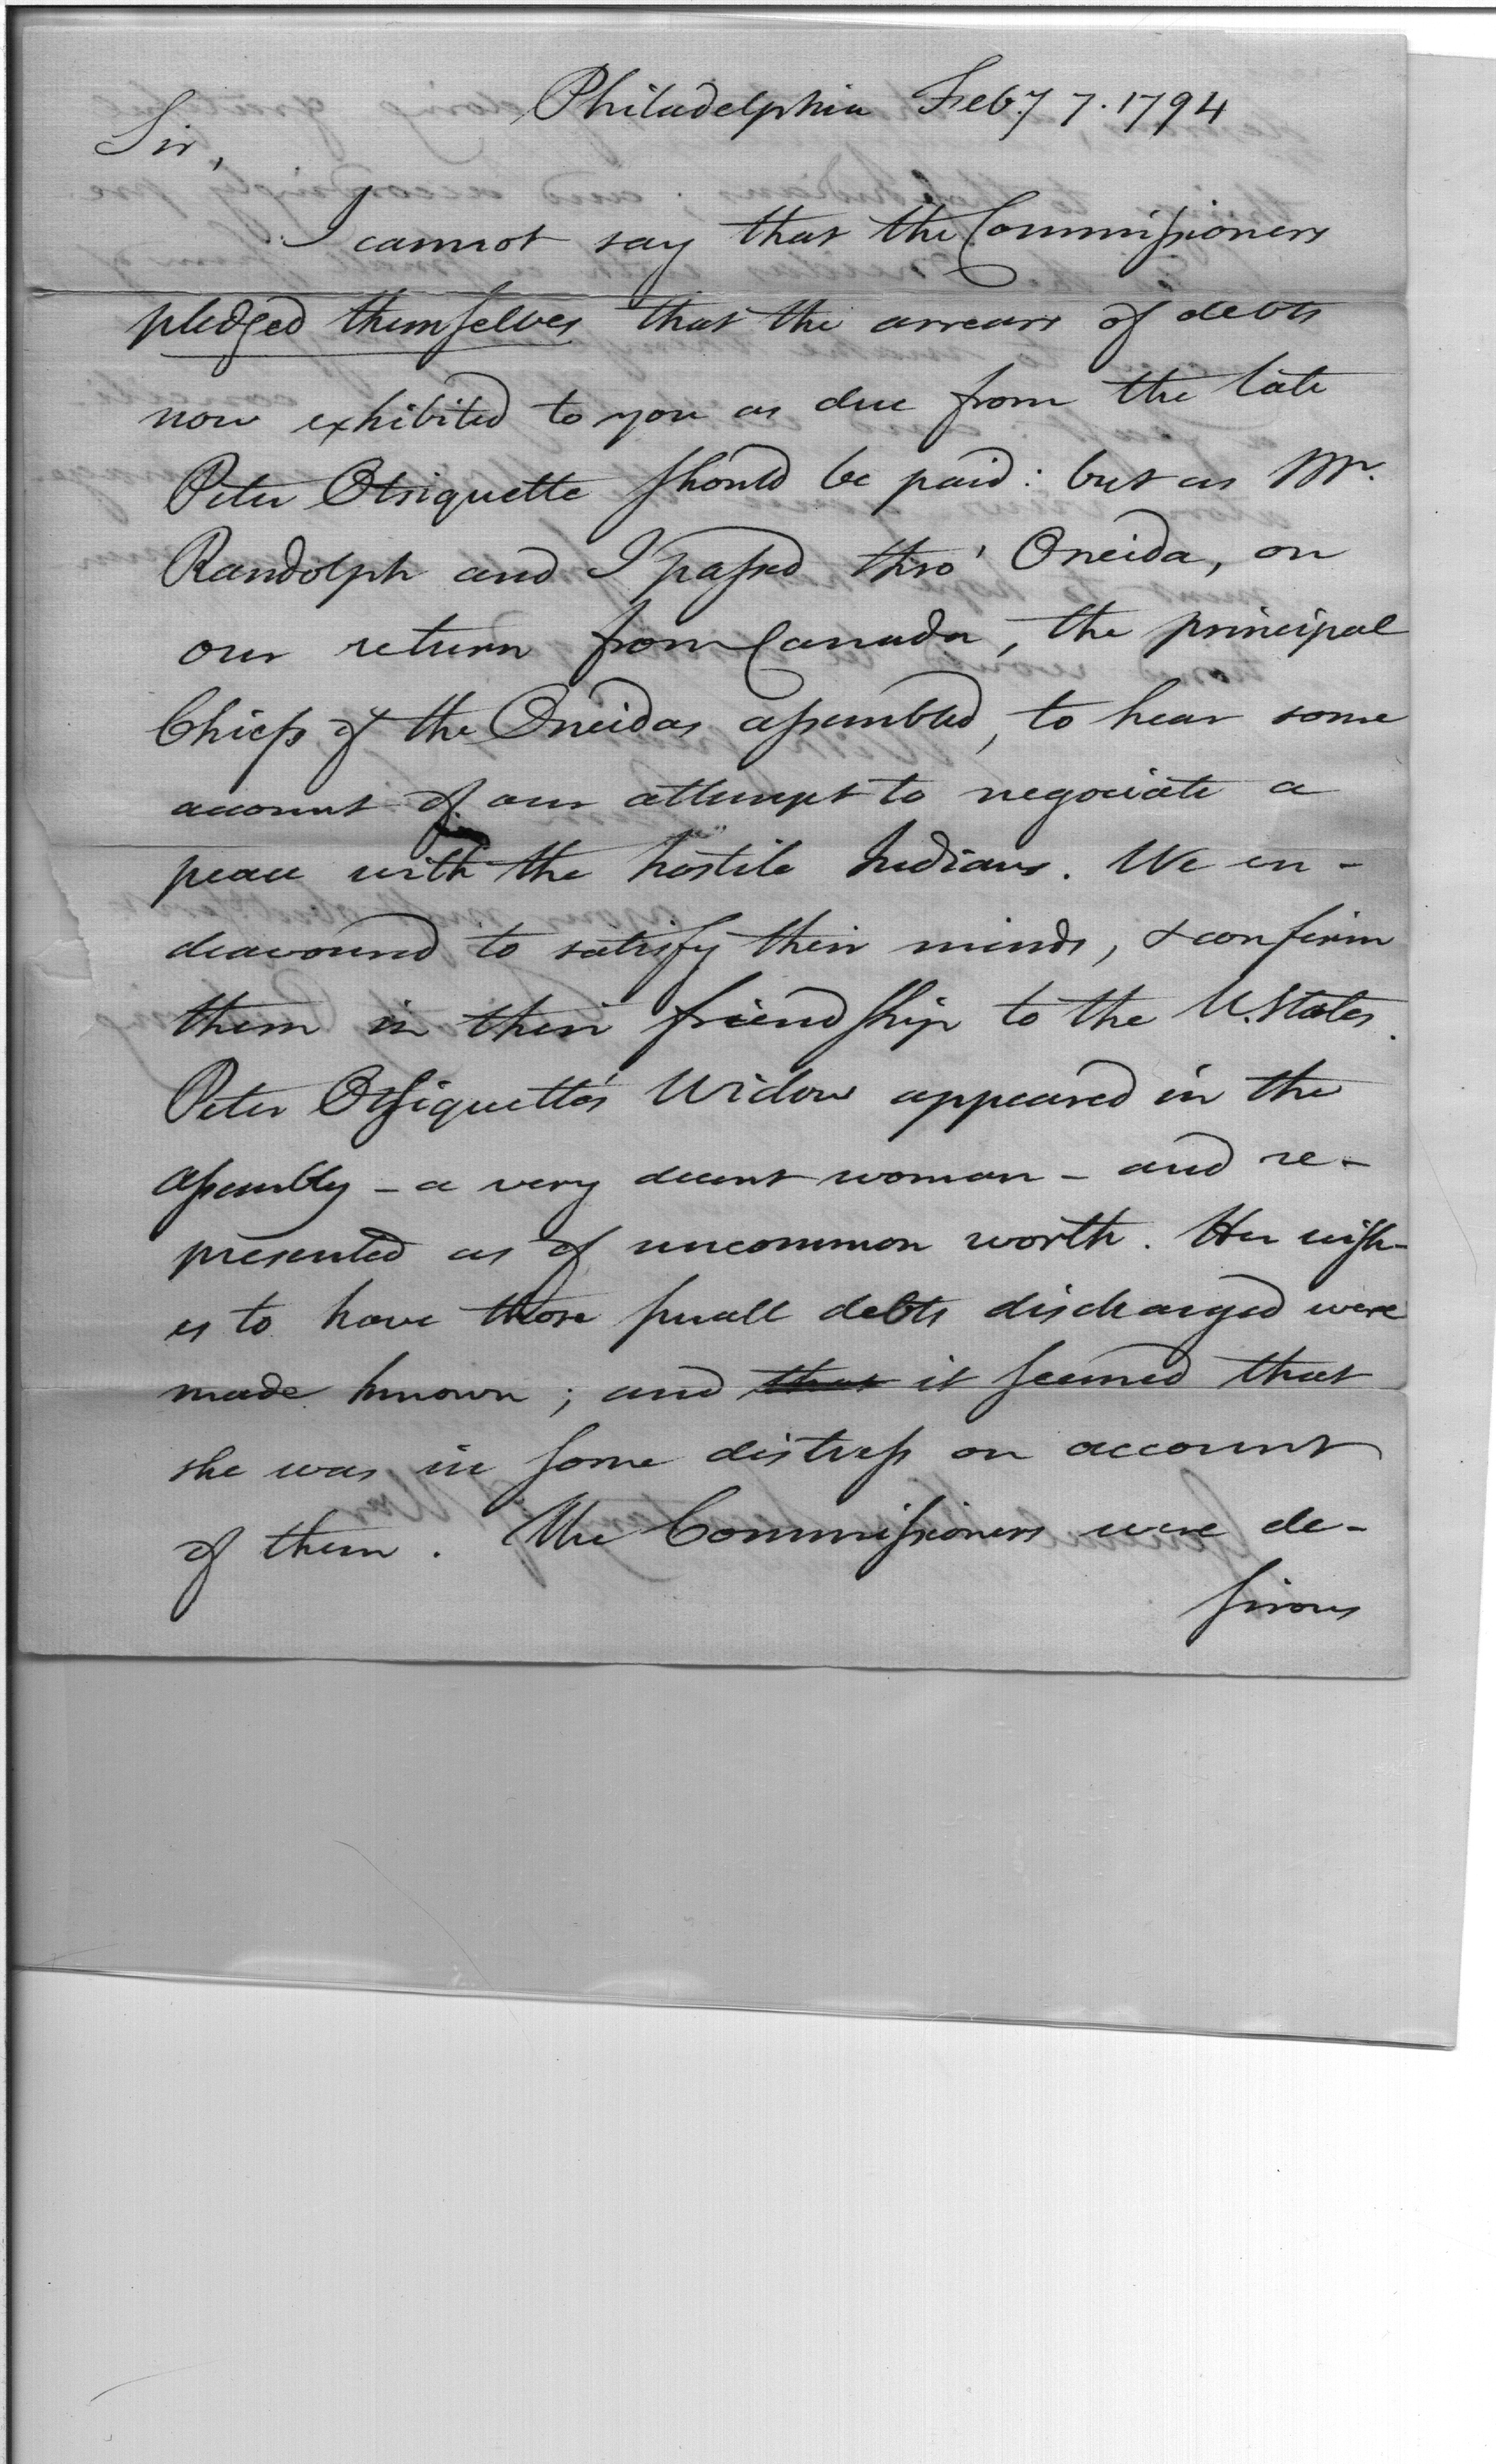 Philadelphia Feb.y 7. 1794
Sir,
I cannot say that the Commissioners
pledged themselves that the arrears of debts
now exhibited to you as due from the late
Peter Otsiquette should be paid: but as Mr.
Randolph and I passed thro' Oneida, on
our return from Canada, the principal
Chiefs of the Oneidas assembled, to hear some
account of our attempt to negociate a
peace with the hostile Indians. We en-
deavoured to satisfy their minds, & confirm
them in their friendship to the U. States.
Peter Otsiquette's Widow appeared in the
assembly - a very decent woman - and re-
presented as of uncommon worth. Her wish-
es to have those small debts discharged were
made known; and that it seemed that
she was in some distress on account
of them. The Commissioners were de-
sirous